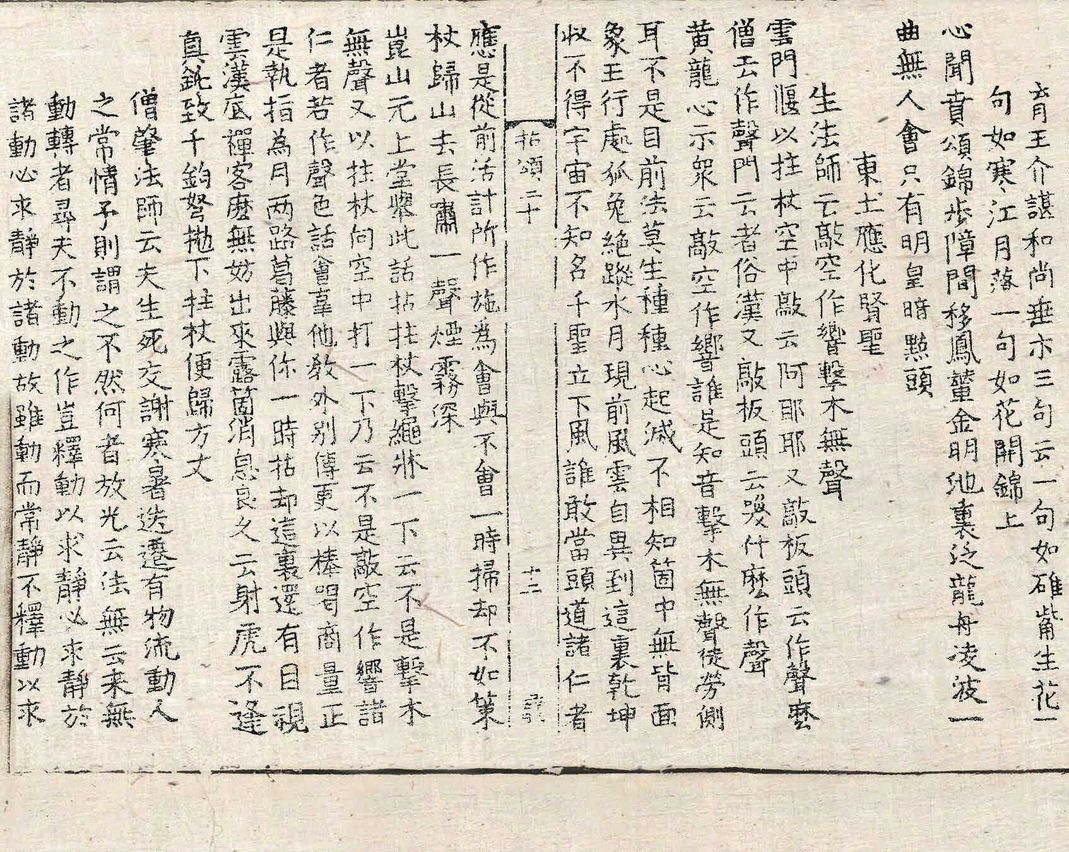 育王介諶和尚垂示三句云一句如碓觜生花一
句如寒江月落一句如花開錦上
心聞賁頌錦步障間移鳳輦金明池裏泛龍舟凌波一
曲無人會只有明皇暗點頭
東土應化賢聖
生法師云敲空作響擊木無聲
雲門偃以拄杖空中敲云阿耶耶又敲板頭云作聲麼
僧云作聲門云者俗漢又敲板頭云喚什麼作聲
黃龍心示衆云敲空作響誰是知音擊木無聲徒勞側
耳不是目前法莫生種種心起滅不相知箇中無背面
象王行處狐兔絕蹤水月現前風雲自異到這裏乾坤
収不得宇宙不知名千聖立下風誰敢當頭道諸仁者
拈頌二十 十二
應是從前活計所作施為會與不會一時掃却不如策
杖歸山去長嘯一聲煙霧深
崑山元上堂舉此話拈拄杖擊繩牀一下云不是擊木
無聲又以拄杖向空中打一下乃云不是敲空作響諸
仁者若作聲色話會辜他教外別傳更以棒喝商量正
是執指為月两路葛藤與你一時拈却這裏還有目視
雲漢底禪客麽無妨出來露箇消息良久云射虎不逢
真徒致千鈞弩拋下拄杖便歸方丈
僧肇法師云夫生死交謝寒暑迭遷有物流動人
之常情予則謂之不然何者放光云法無云来無
動轉者尋夫不動之作豈釋動以求靜必求靜於
諸動必求靜於諸動故雖動而常靜不釋動以求